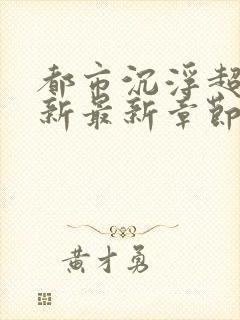 都市沉浮超
新最新章節
黄才勇